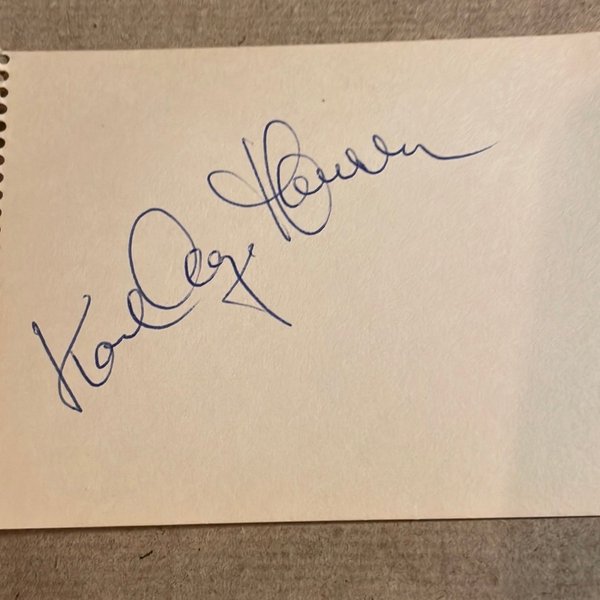 Karl Aage Hansen